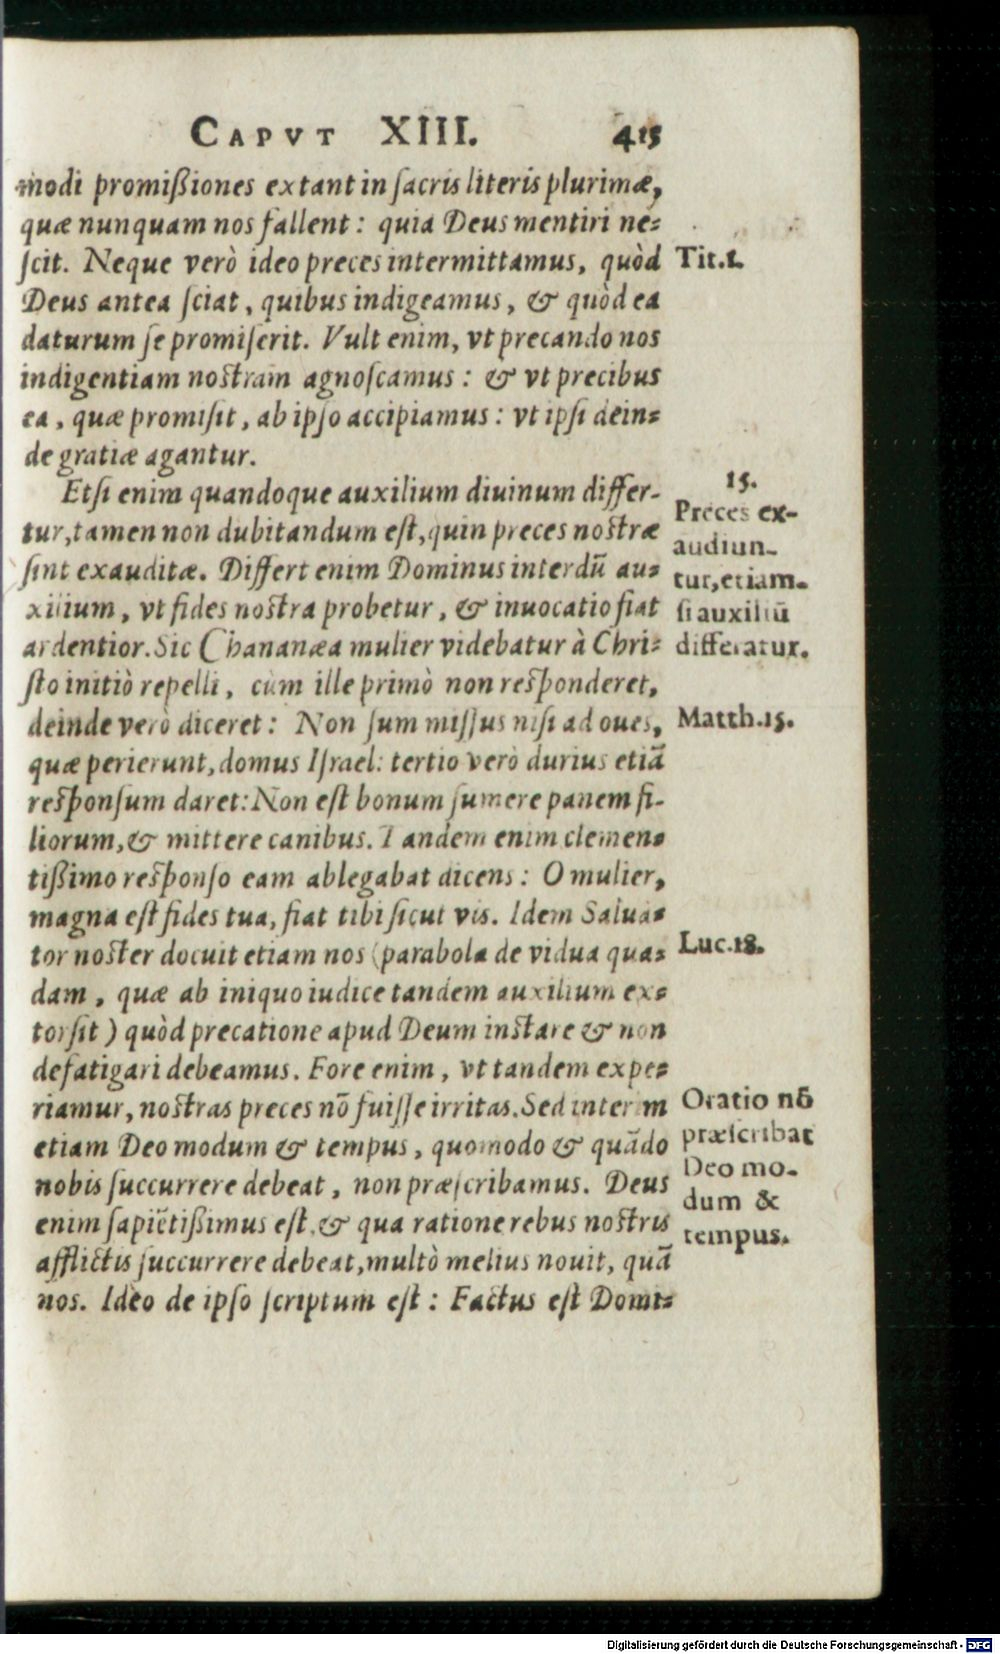 CAPVT XIII. 415
modi promißiones extant in ſacris literis plurimæ,
quæ nunquam nos fallent: quia Deus mentiri ne-
ſcit. Neque verò ideo preces intermittamus, quòd
Tit.1.
Deus antea ſciat, quibus indigeamus, & quòd ea
daturum ſe promiſerit. Vult enim, vt precando nos
indigentiam noſtram agnoſcamus: & vt precibus
ea, quæ promiſit, ab ipſo accipiamus: vt ipſi dein-
de gratiæ agantur.
Etſi enim quandoque auxilium diuinum differ-
tur, tamen non dubitandum eſt, quin preces noſtræ
ſint exauditæ. Differt enim Dominus interdū au-
xilium, vt fides noſtra probetur, & inuocatio fiat
ardentior. Sic Chananæa mulier videbatur à Chri-
15.
Preces ex-
audiun-
tur, etiam-
ſi auxiliū
differatur.
ſto initiò repelli, cùm ille primò non reſponderet,
deinde verò diceret: Non ſum miſſus niſi ad oues,
Matth.15.
quæ perierunt, domus Iſrael: tertio verò durius etiā
reſponſum daret: Non eſt bonum ſumere panem fi-
liorum, & mittere canibus. Tandem enim clemen-
tißimo reſponſo eam ablegabat dicens: O mulier,
magna eſt fides tua, fiat tibi ſicut vis. Idem Salua-
tor noſter docuit etiam nos (parabola de vidua qua-
Luc.18.
dam, quæ ab iniquo iudice tandem auxilium ex-
torſit) quòd precatione apud Deum inſtare & non
defatigari debeamus. Fore enim, vt tandem expe-
riamur, noſtras preces nō fuiſſe irritas. Sed interim
etiam Deo modum & tempus, quomodo & quādo
nobis ſuccurrere debeat, non præſcribamus. Deus
enim ſapiētißimus eſt, & qua ratione rebus noſtris
Oratio nō
præſcribat
Deo mo-
dum &
tempus.
afflictis ſuccurrere debeat, multò melius nouit, quā
nos. Ideo de ipſo ſcriptum eſt: Factus eſt Domi-
Digitalisierung gefördert durch die Deutsche Forschungsgemeinschaft - DFG